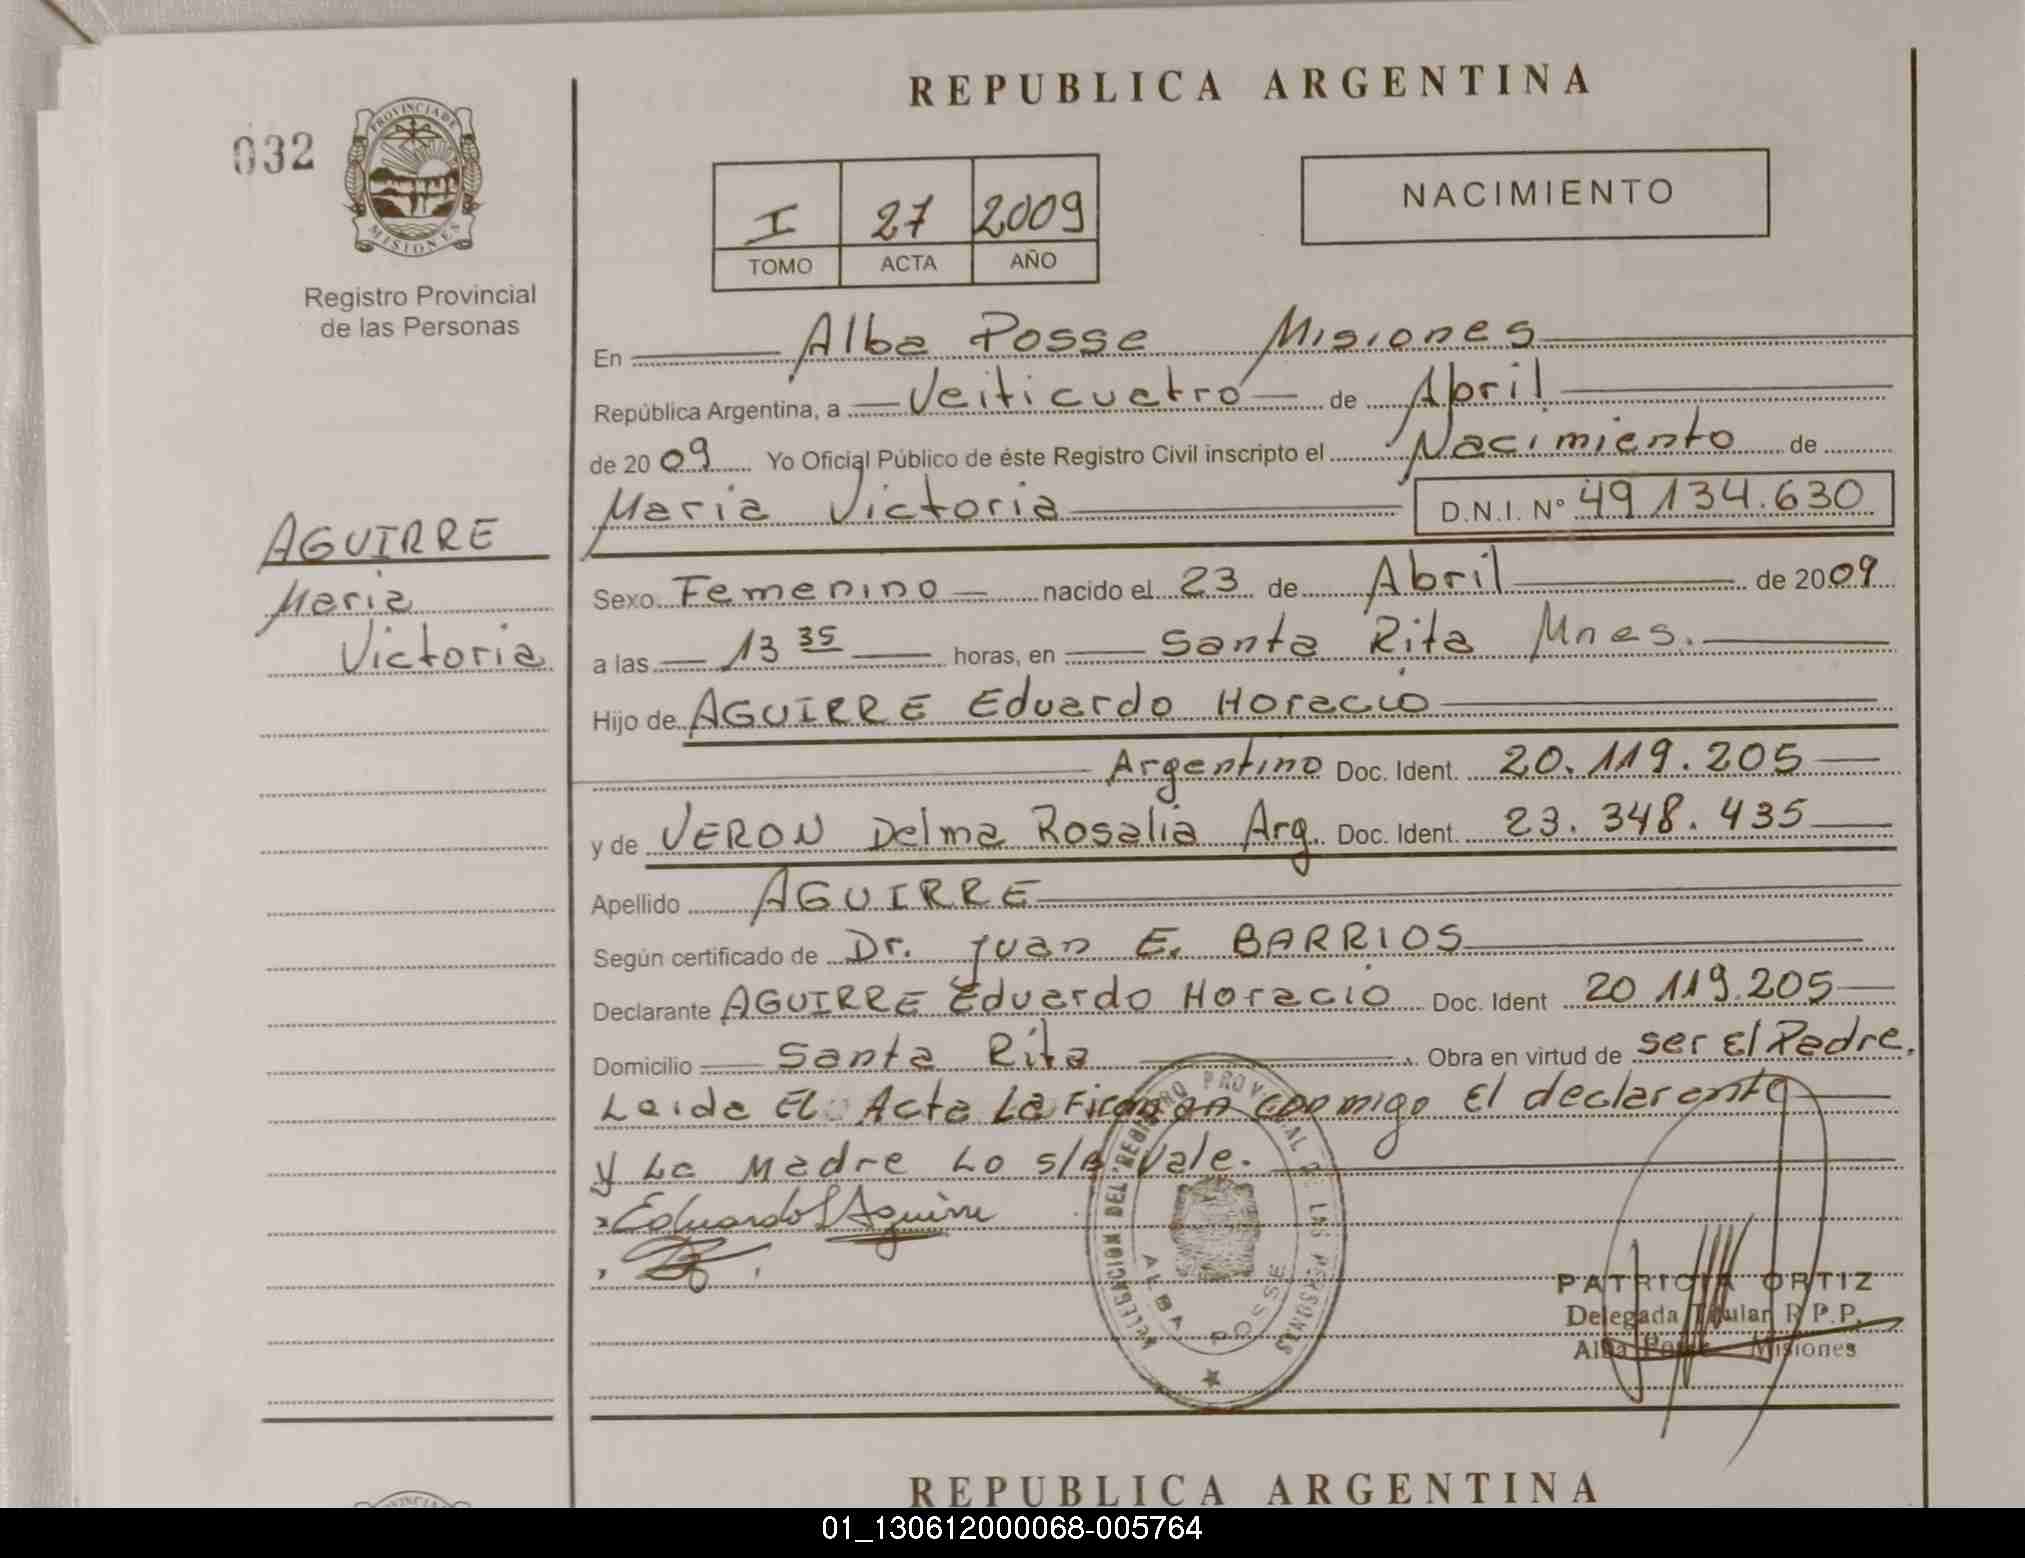 REPUBLICA ARGENTINA
032
PROVINCIA DE
MISIONES
Registro Provincial
de las Personas
I 27 2009
TOMO ACTA AÑO
NACIMIENTO
En Alba Posse Misiones
República Argentina, a Veiticuatro de Abril
de 2009 Yo Oficial Público de éste Registro Civil inscripto el Nacimiento de
Maria Victoria D.N.I. Nº 49 134.630
AGUIRRE
Maria
Victoria
Sexo Femenino nacido el 23 de Abril de 2009
a las 13 35 horas, en Santa Rita Mnes.
Hijo de AGUIRRE Eduardo Horacio
Argentino Doc. Ident. 20.119.205
y de VERON Delma Rosalia Arg. Doc. Ident. 23.348.435
Apellido AGUIRRE
Según certificado de Dr. Juan E. BARRIOS
Declarante AGUIRRE Eduardo Horacio Doc. Ident 20 119.205
Domicilio Santa Rita Obra en virtud de ser El Padre.
Leida El Acta La Firman conmigo El declarante
y La Madre Lo s/r Vale.
Eduardo H Aguirre
DELEGACION DEL REGISTRO PROVINCIAL DE LAS PERSONAS
ALBA POSSE
PATRICIA ORTIZ
Delegada Titular R.P.P.
Alba Posse Misiones
REPUBLICA ARGENTINA
01_130612000068-005764